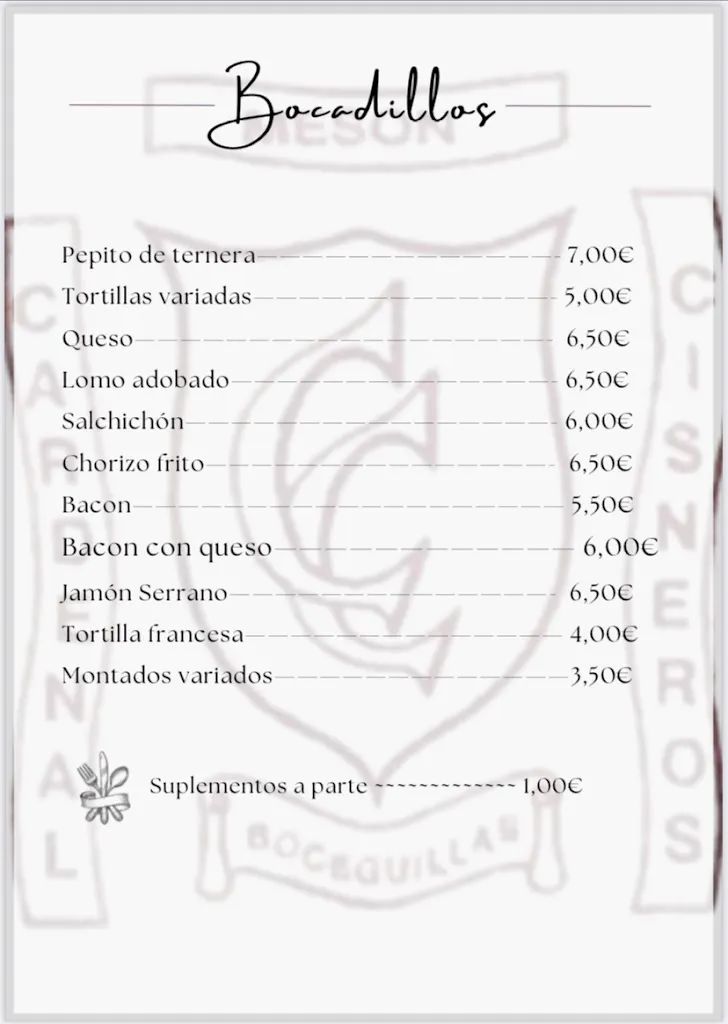 Bocadillos
MESON
CARDENAL
CISNEROS
Pepito de ternera 7,00€
Tortillas variadas 5,00€
Queso 6,50€
Lomo adobado 6,50€
Salchichón 6,00€
Chorizo frito 6,50€
Bacon 5,50€
Bacon con queso 6,00€
Jamón Serrano 6,50€
Tortilla francesa 4,00€
Montados variados 3,50€
Suplementos a parte ~~~~~~~~~~~~~ 1,00€
BOCEGUILLAS